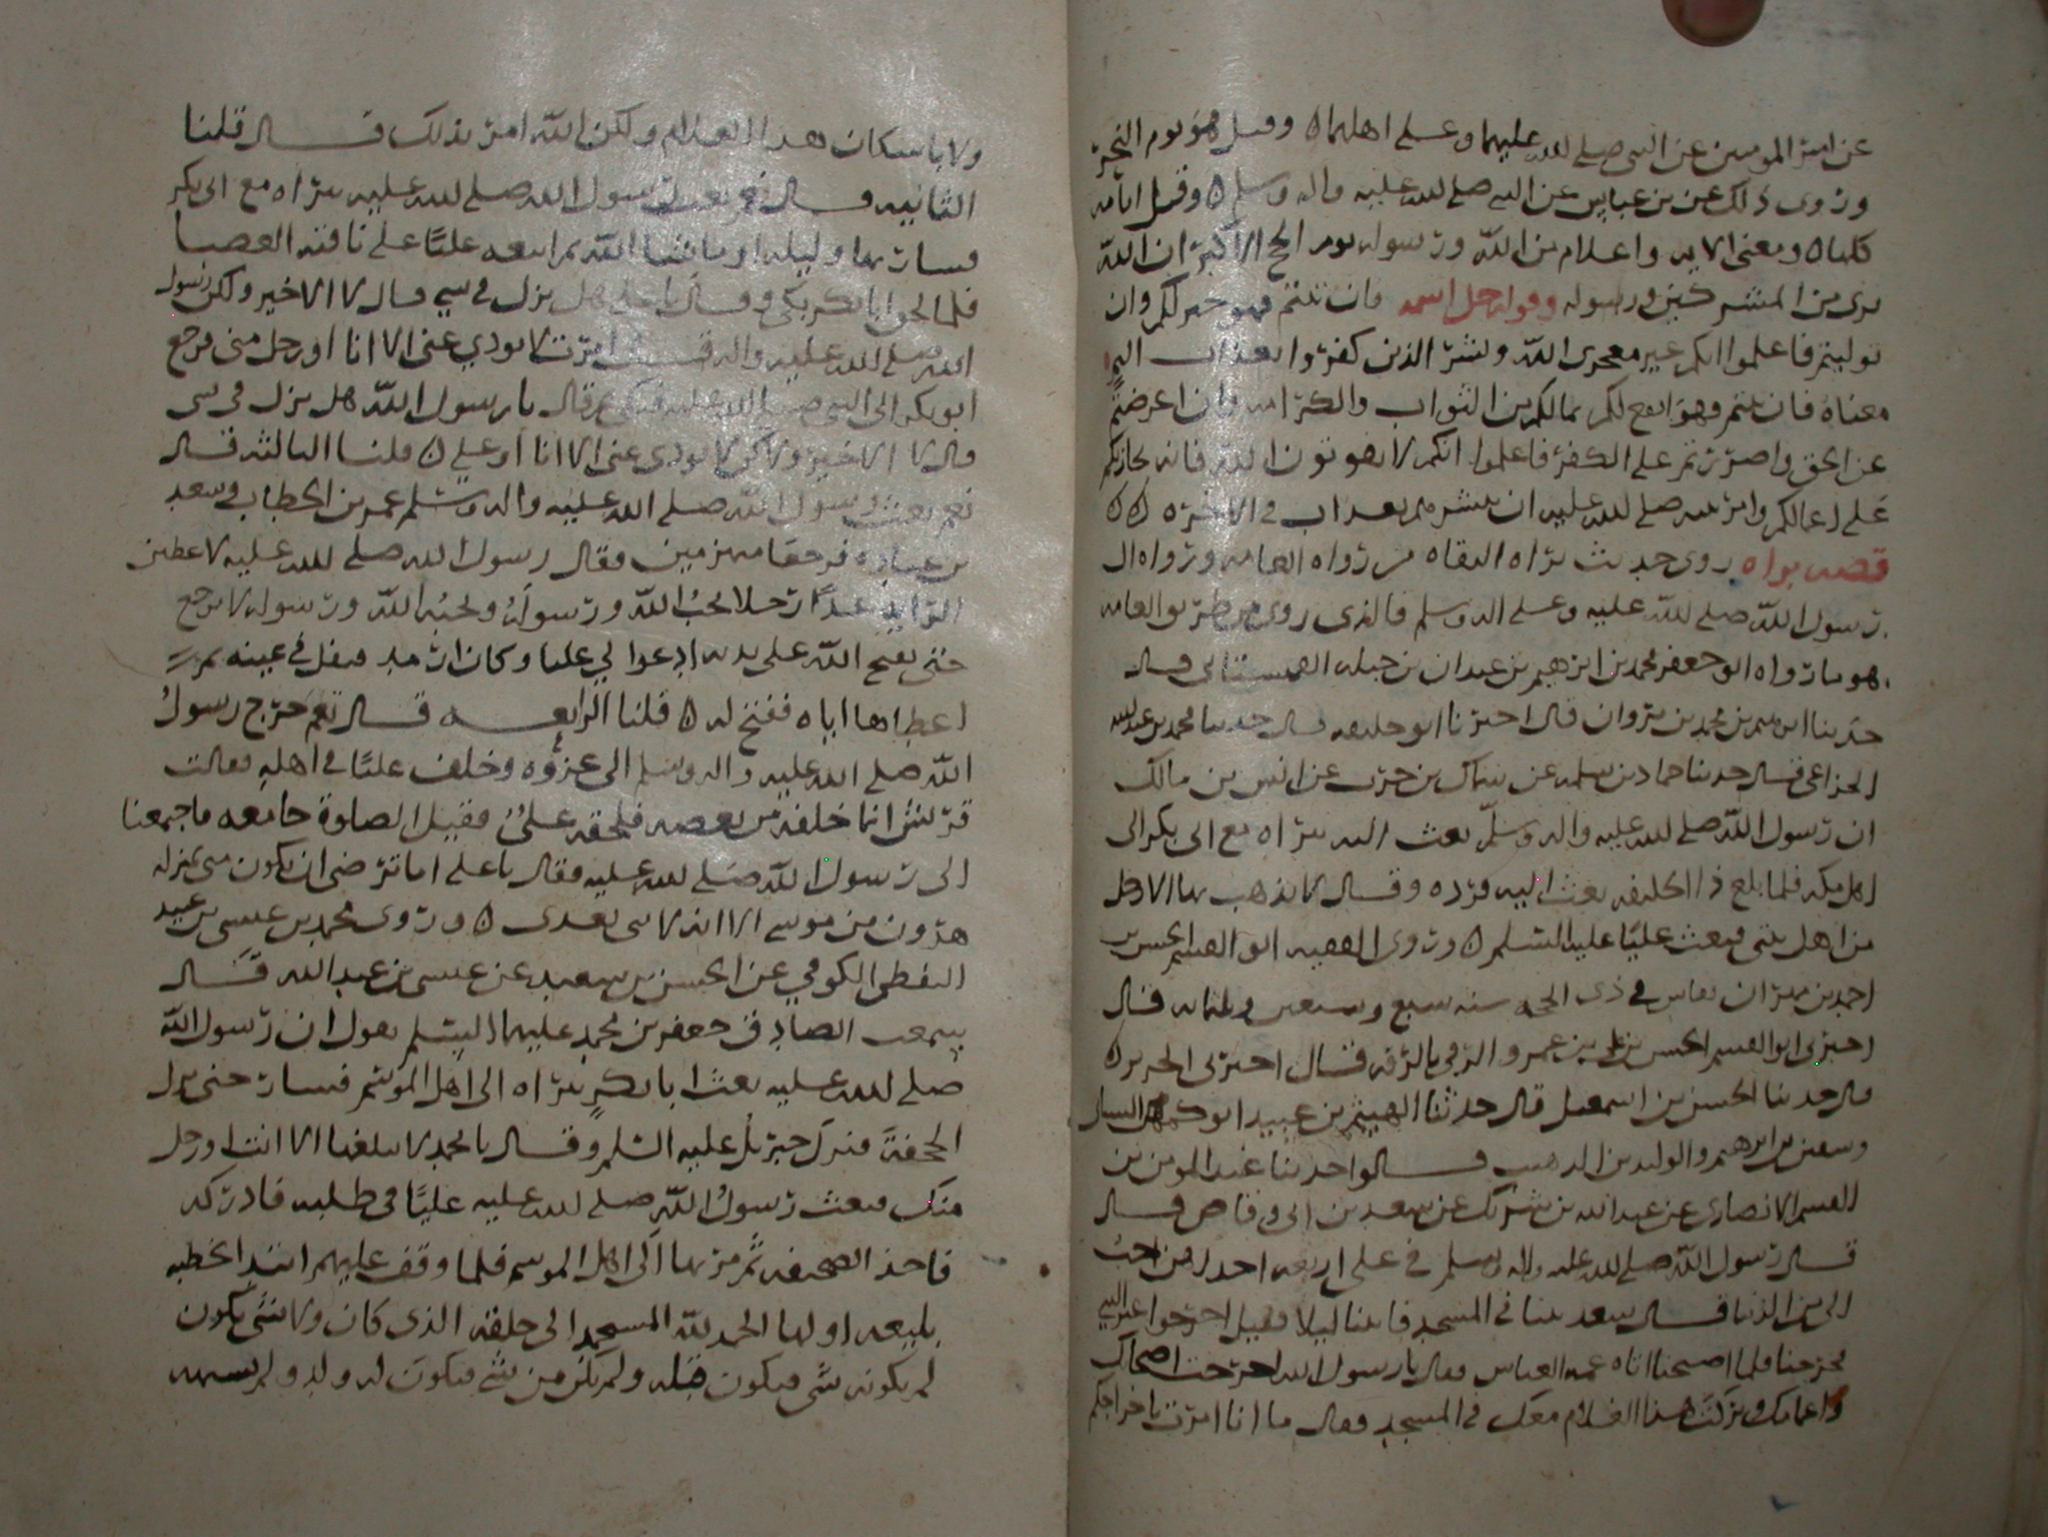 عن امير المومنين عن النبي صلى الله عليهما وعلى اهلهما ه وقيل هو يوم النحر
وروى ذلك عن بن عباس عن النبي صلى الله عليه واله وسلم ه وقيل ايامه
كلها ه ومعنى الايه واعلام من الله ورسوله يوم الحج الاكبر ان الله
برى من المشركين ورسوله وقوله جل اسمه فان تبتم فهو خير لكم وان
توليتم فاعلموا انكم غير معجزى الله وبشر الذين كفروا بعذاب اليم
معناه فان تبتم فهو انفع لكم بما لكم من الثواب والكرامه وان اعرضتم
عن الحق واصررتم على الكفر فاعلموا انكم لا تفوتون الله فانه يجازيكم
على اعمالكم وامر نبيه صلى الله عليه ان يبشرهم بعذاب في الاخره ه ه
قصه براه روى حديث براه الثقاه من رواه العامه ورواه ال
رسول الله صلى الله عليه وعلى اله وسلم فالذى روى من طريق العامه
هو ما رواه ابو جعفر محمد بن ابرهيم بن عبدان بن جبله قال
حدثنا بن محمد بن مروان قال اخبرنا ابو خليفه قال حدثنا محمد بن عبدالله
الخزاعي قال حدثنا حماد بن سلمه عن سماك بن حرب عن انس بن مالك
ان رسول الله صلى الله عليه واله وسلم بعث براه مع ابى بكر الى
اهل مكه فلما بلغ ذا الحليفه بعث اليه فرده وقال لا يذهب بها الا رجل
من اهل بيتي فبعث عليا عليه السلم ه وروى الفقيه ابو القسم الحسن بن
احمد بن مهران بفاس في ذى الحجه سنه سبع وسبعين وثلثمايه قال
اخبرني ابو القسم الحسن بن علي بن عمرو الرقي بالرقه قال اخبرني
قال حدثنا الحسن بن اسمعيل قال حدثنا الهيثم بن عبيد ابو
بن ابرهيم والوليد بن قالوا حدثنا عبد المومن بن
القسم الانصارى عن عبدالله بن شريك عن سعد بن ابي وقاص قال
قال رسول الله صلى الله عليه واله وسلم في علي اربعه احدا من احب
الي من الدنيا قال سعد بتنا في المسجد فاتانا ليلا فقيل اخرجوا غير النبي
فخرجنا فلما اصبحنا اتاه عمه العباس فقال يا رسول الله اخرجت اصحابك
واعمامك وتركت هذا الغلام معك في المسجد فقال ما انا امرت باخراجكم
ولا باسكان هذا الغلام ولكن الله امر بذلك قال قلنا
الثانيه قال نعم بعث رسول الله صلى الله عليه براه مع ابى بكر
فسار يوما وليله او ما شا الله ثم اتبعه عليا على ناقته العضبا
فلما لحق ابا بكر بكى وقال يا علي هل نزل في شي قال لا الا خير ولكن رسول
الله صلى الله عليه واله قال امرت لا يودي عني الا انا او رجل مني فرجع
ابو بكر الى النبي صلى الله عليه فبكى ثم قال يا رسول الله هل نزل في شي
قال لا الا خير ولكن لا يودى عني الا انا او علي ه قلنا الثالثه قال
نعم بعث رسول الله صلى الله عليه واله وسلم عمر بن الخطاب وسعد
بن عباده فرجعا منهزمين فقال رسول الله صلى الله عليه لاعطين
الرايه غدا رجلا يحب الله ورسوله ويحبه الله ورسوله لا يرجع
حتى يفتح الله على يديه ادعوا لي عليا وكان ارمد فتفل في عينه ثم
اعطاها اياه ففتح له ه قلنا الرابعه قال نعم خرج رسول
الله صلى الله عليه واله وسلم الى غزوه وخلف عليا في اهله فقالت
قريش انما خلفه من بغضه فلحقه علي فقيل الصلوة جامعه فاجمعنا
الى رسول الله صلى الله عليه فقال يا علي اما ترضى ان تكون مني بمنزله
هرون من موسى الا انه لا نبي بعدى ه وروى محمد بن عيسى بن عبيد
اليقطي الكوفي عن الحسن بن سعيد عن عيسى بن عبدالله قال
سمعت الصادق جعفر بن محمد عليهما السلم يقول ان رسول الله
صلى الله عليه بعث ابا بكر ببراه الى اهل الموسم فسار حتى نزل
الجحفة فنزل جبريل عليه السلم وقال يا محمد لا يبلغها الا انت او رجل
منك فبعث رسول الله صلى الله عليه عليا في طلبه فادركه
فاخذ الصحيفه ثم مر بها الى اهل الموسم فلما وقف عليهم ابتدا بخطبه
بليغه اولها الحمد لله الى خلقه الذى كان ولا شي يكون
لم يكونه شي فيكون قبله ولم يكن من شي فيكون له ولد ولم